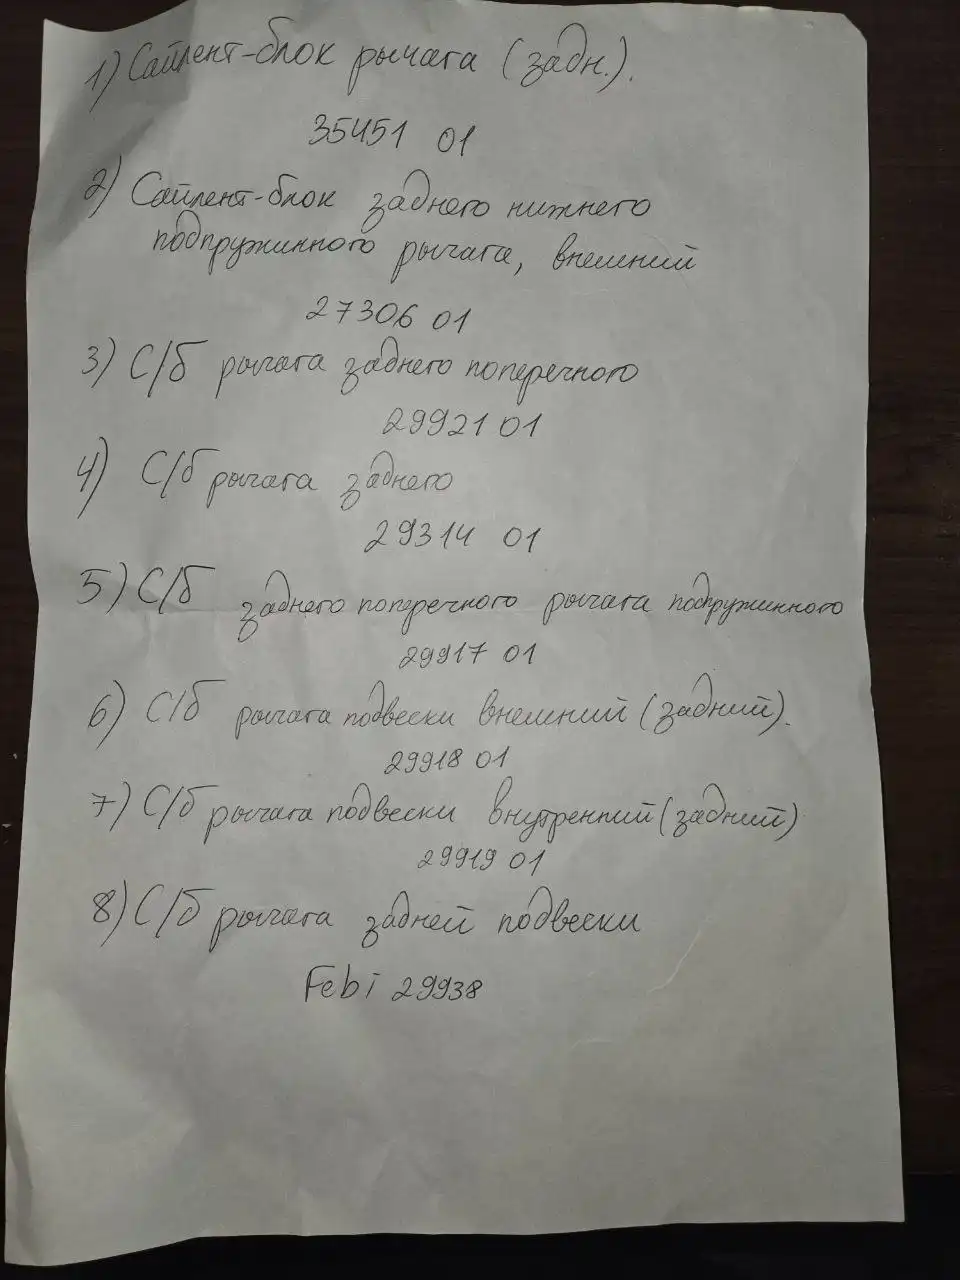 1) Сайлент-блок рычага (задн.).
35451 01
2) Сайлент-блок заднего нижнего
подпружинного рычага, внешний
27306 01
3) С/б рычага заднего поперечного
29921 01
4) С/б рычага заднего
29314 01
5) С/б заднего поперечного рычага подпружинного
29917 01
6) С/б рычага подвески внешний (задний).
29918 01
7) С/б рычага подвески внутренний (задний)
29919 01
8) С/б рычага задней подвески
Febi 29938